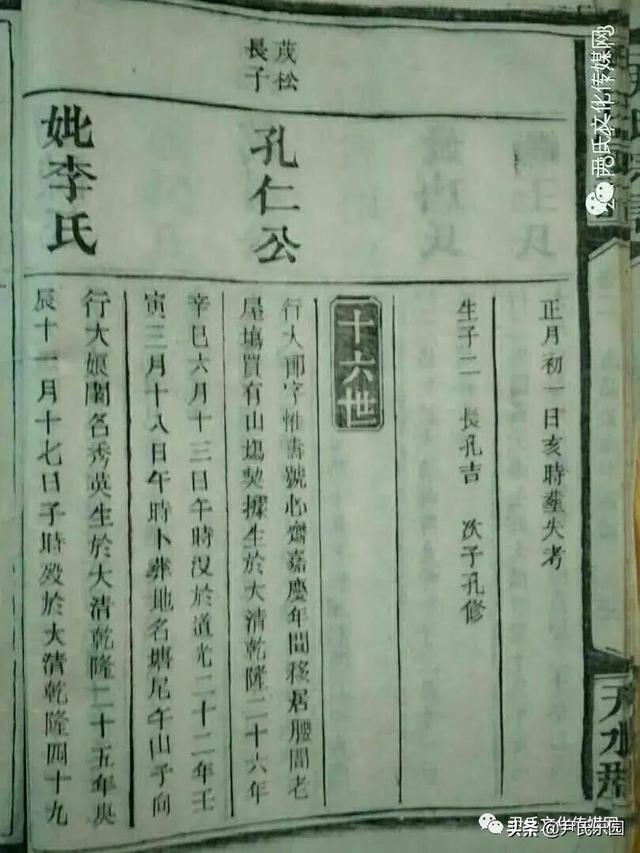 天水郡
正月初一日亥時塋失考
生子二 長孔吉 次子孔修
十六世
茂松
長子
孔仁公
行大郎字惟壽號心齋嘉慶年間移居腰閭老
屋塲買有山塲契據生於大清乾隆二十六年
辛巳六月十三日午時没於道光二十二年壬
寅三月十八日午時卜葬地名塘尾午山子向
妣李氏
行大娘閨名秀英生於大清乾隆二十五年庚
辰十一月十七日子時殁於大清乾隆四十九
尹氏文化传媒网
尹氏文化传媒网
头条 @尹氏乐园